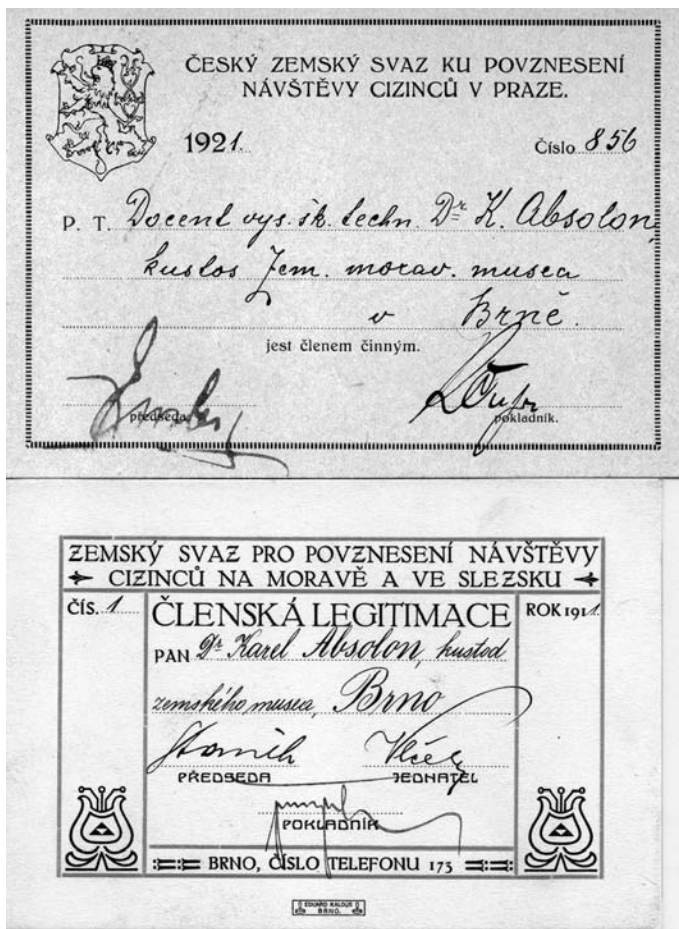 ČESKÝ ZEMSKÝ SVAZ KU POVZNESENÍ
NÁVŠTĚVY CIZINCŮ V PRAZE.
1921.
Číslo 856
P. T. Docent vys. šk. techn. Dr K. Absolon,
kustos Zem. morav. musea
v Brně.
jest členem činným.
předseda.
pokladník.
ZEMSKÝ SVAZ PRO POVZNESENÍ NÁVŠTĚVY
CIZINCŮ NA MORAVĚ A VE SLEZSKU
ČÍS. 1
ČLENSKÁ LEGITIMACE
ROK 1911.
PAN Dr Karel Absolon, kustod
zemského musea, Brno
PŘEDSEDA
JEDNATEL
POKLADNÍK
BRNO, ČÍSLO TELEFONU 173
EDUARD KALOUS
BRNO.